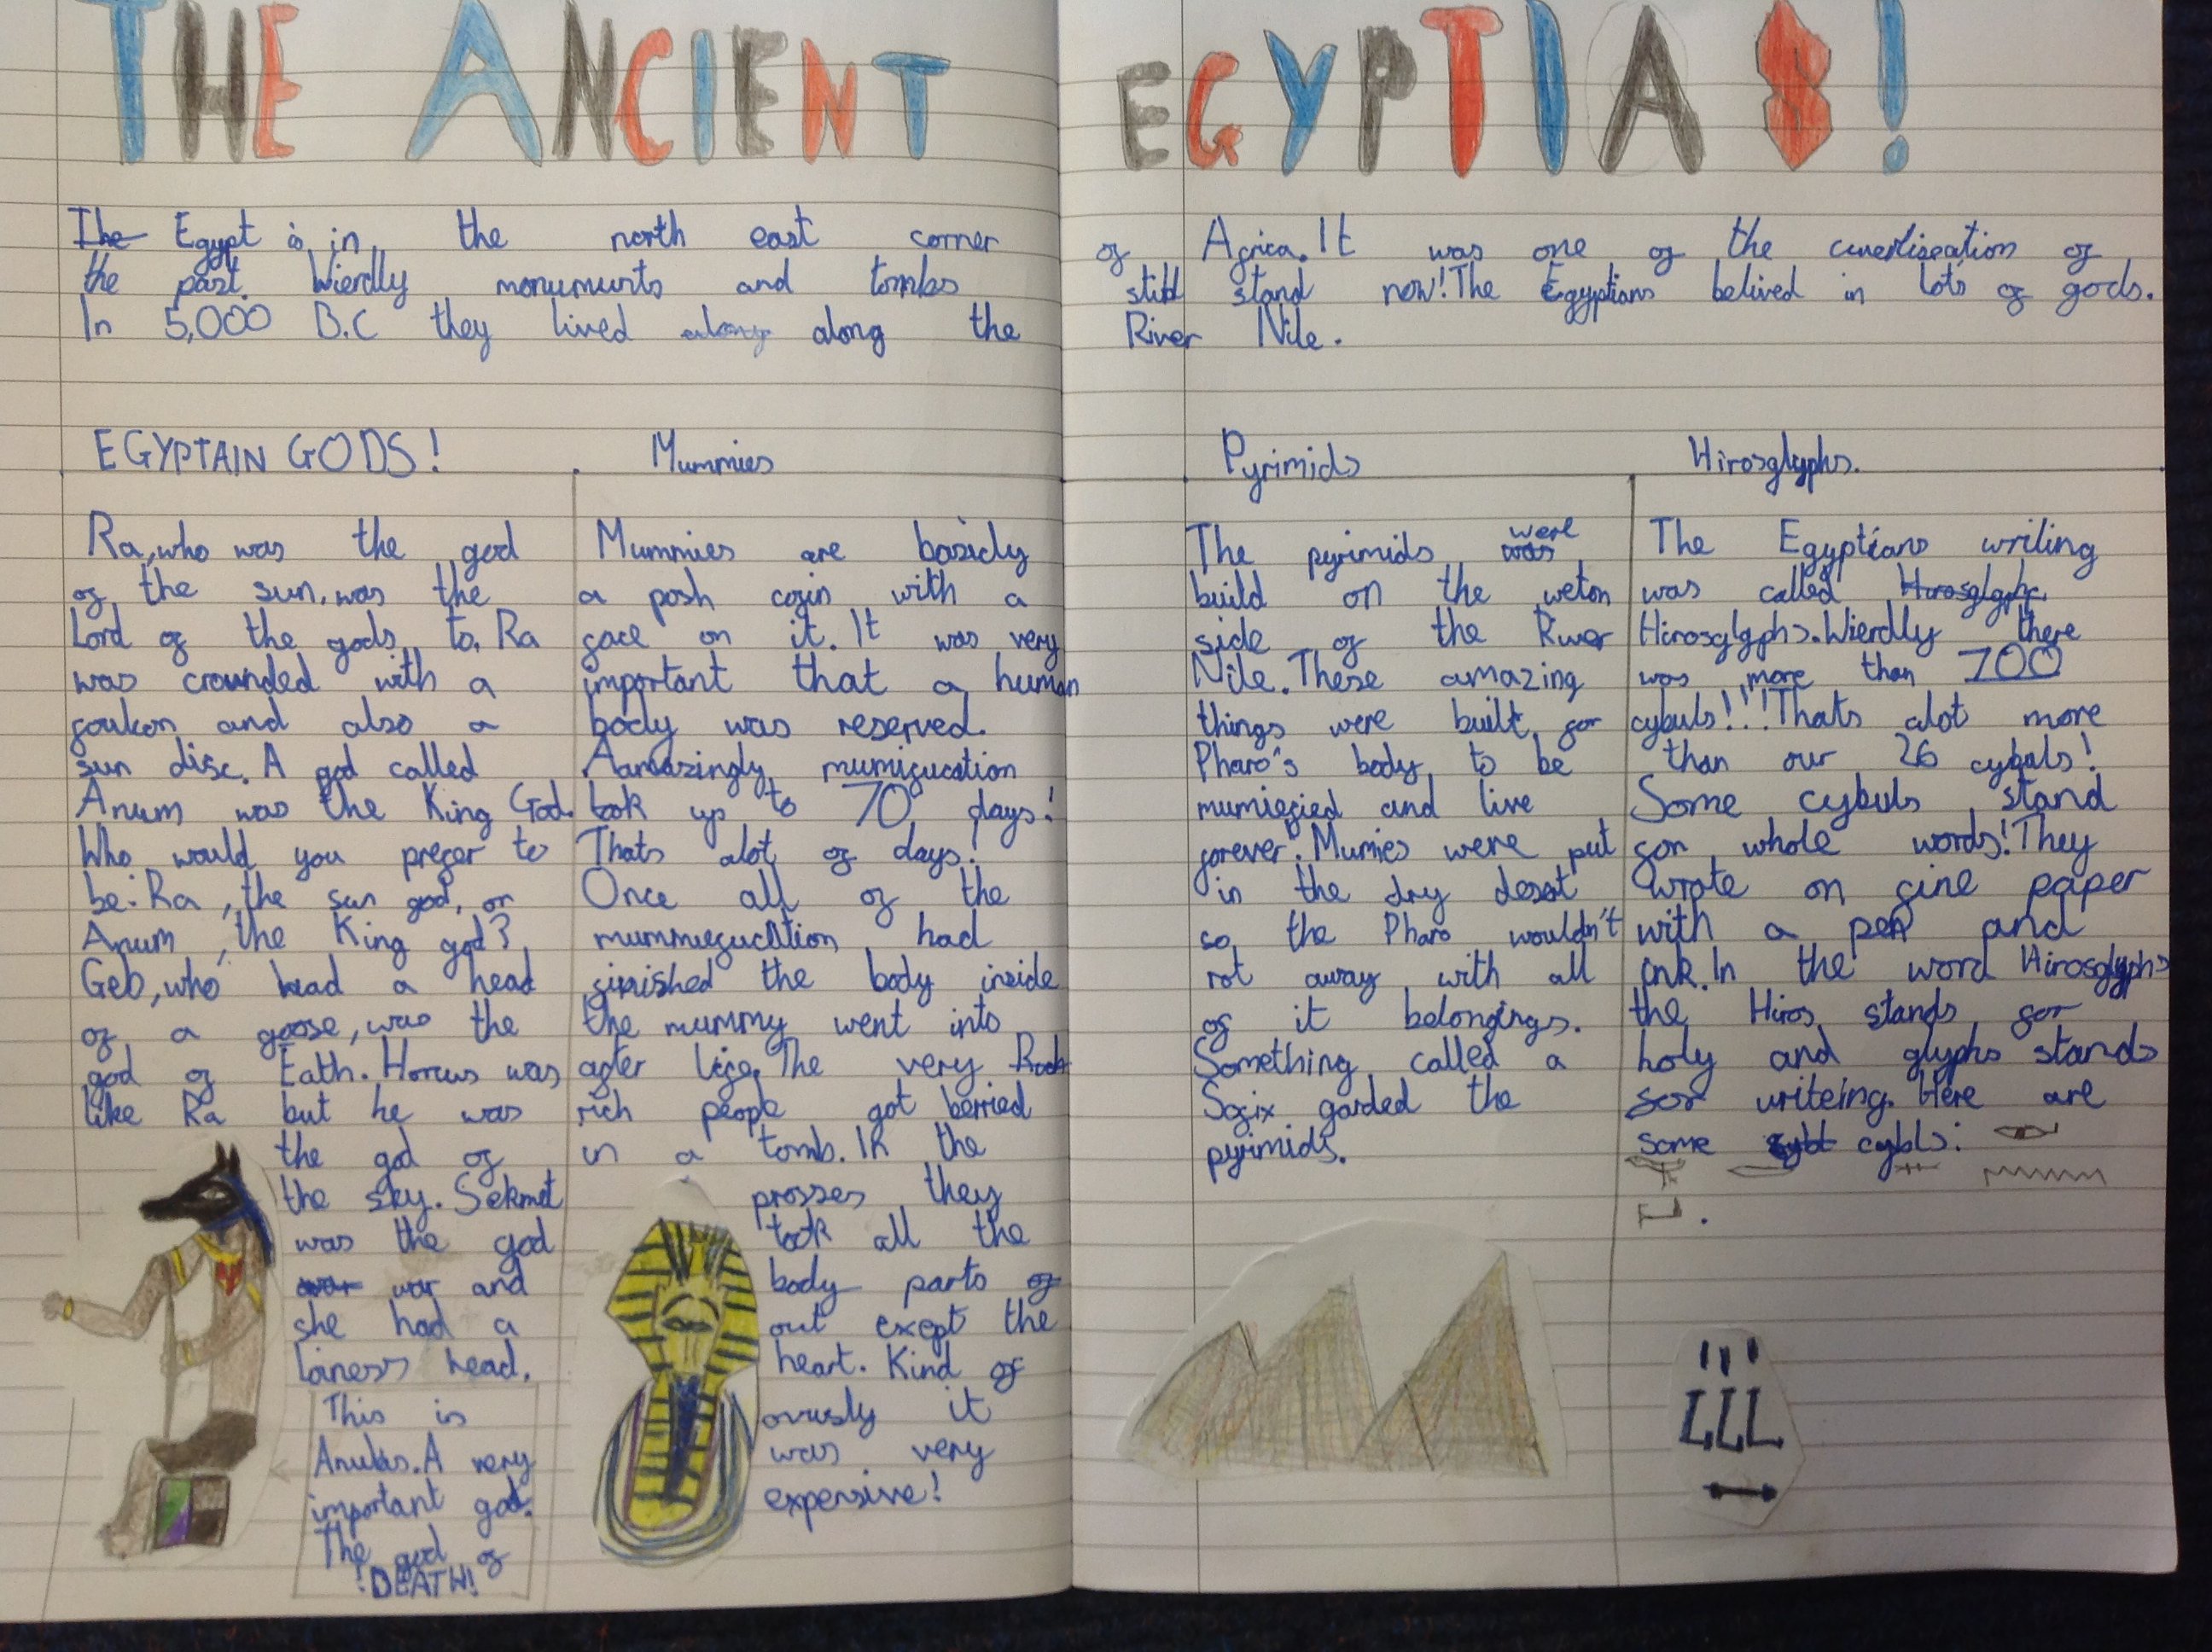 THE ANCIENT EGYPTIAS!
The Egypt is in the north east corner of Africa. It was one of the of
the past. Wierdly monumunts and tombs still stand now! The Egyptians belived in lots of gods.
In 5,000 B.C they lived along along the River Nile.
EGYPTAIN GODS!
Ra, who was the god
of the sun, was the
Lord of the gods to. Ra
was crounded with a
foulkon and also a
sun disc. A god called
Anum was the King God.
Who would you prefer to
be: Ra, the sun god, or
Anum, the King god?
Geb, who had a head
of a goose, was the
god of Eath. Horus was
like Ra but he was
the god of
the sky. Sekmet
was the god
war war and
she had a
lainess head.
This is
Anubis. A very
important god.
The god of
!DEATH!
Mummies
Mummies are basicly
a posh cofin with a
face on it. It was very
important that a human
body was reserved.
Aamazingly mumifucation
took up to 70 days!
Thats alot of days!
Once all of the
mummiefucation had
finished the body inside
the mummy went into
after life. The very
rich people got berried
in a tomb. In the
prosses they
took all the
body parts of
out exept the
heart. Kind of
ovusly it
was very
expensive!
Pyrimids
The pyrimids was were
build on the weton
side of the River
Nile. These amazing
things were built for
Pharo's body to be
mumiefied and live
forever. Mumies were put
in the dry desat
so the Pharo wouldn't
rot away with all
of it belongings.
Something called a
Sofix garded the
pyrimids.
Hirosglyphs.
The Egyptians writing
was called Hirosglyphs
Hirosglyphs. Wierdly there
was more than 700
cybuls!!! Thats alot more
than our 26 cybals!
Some cybuls stand
for whole words! They
wrote on fine paper
with a pen and
ink. In the word Hirosglyphs
the Hiros stands for
holy and glyphs stands
for writeing. Here are
some cybls: